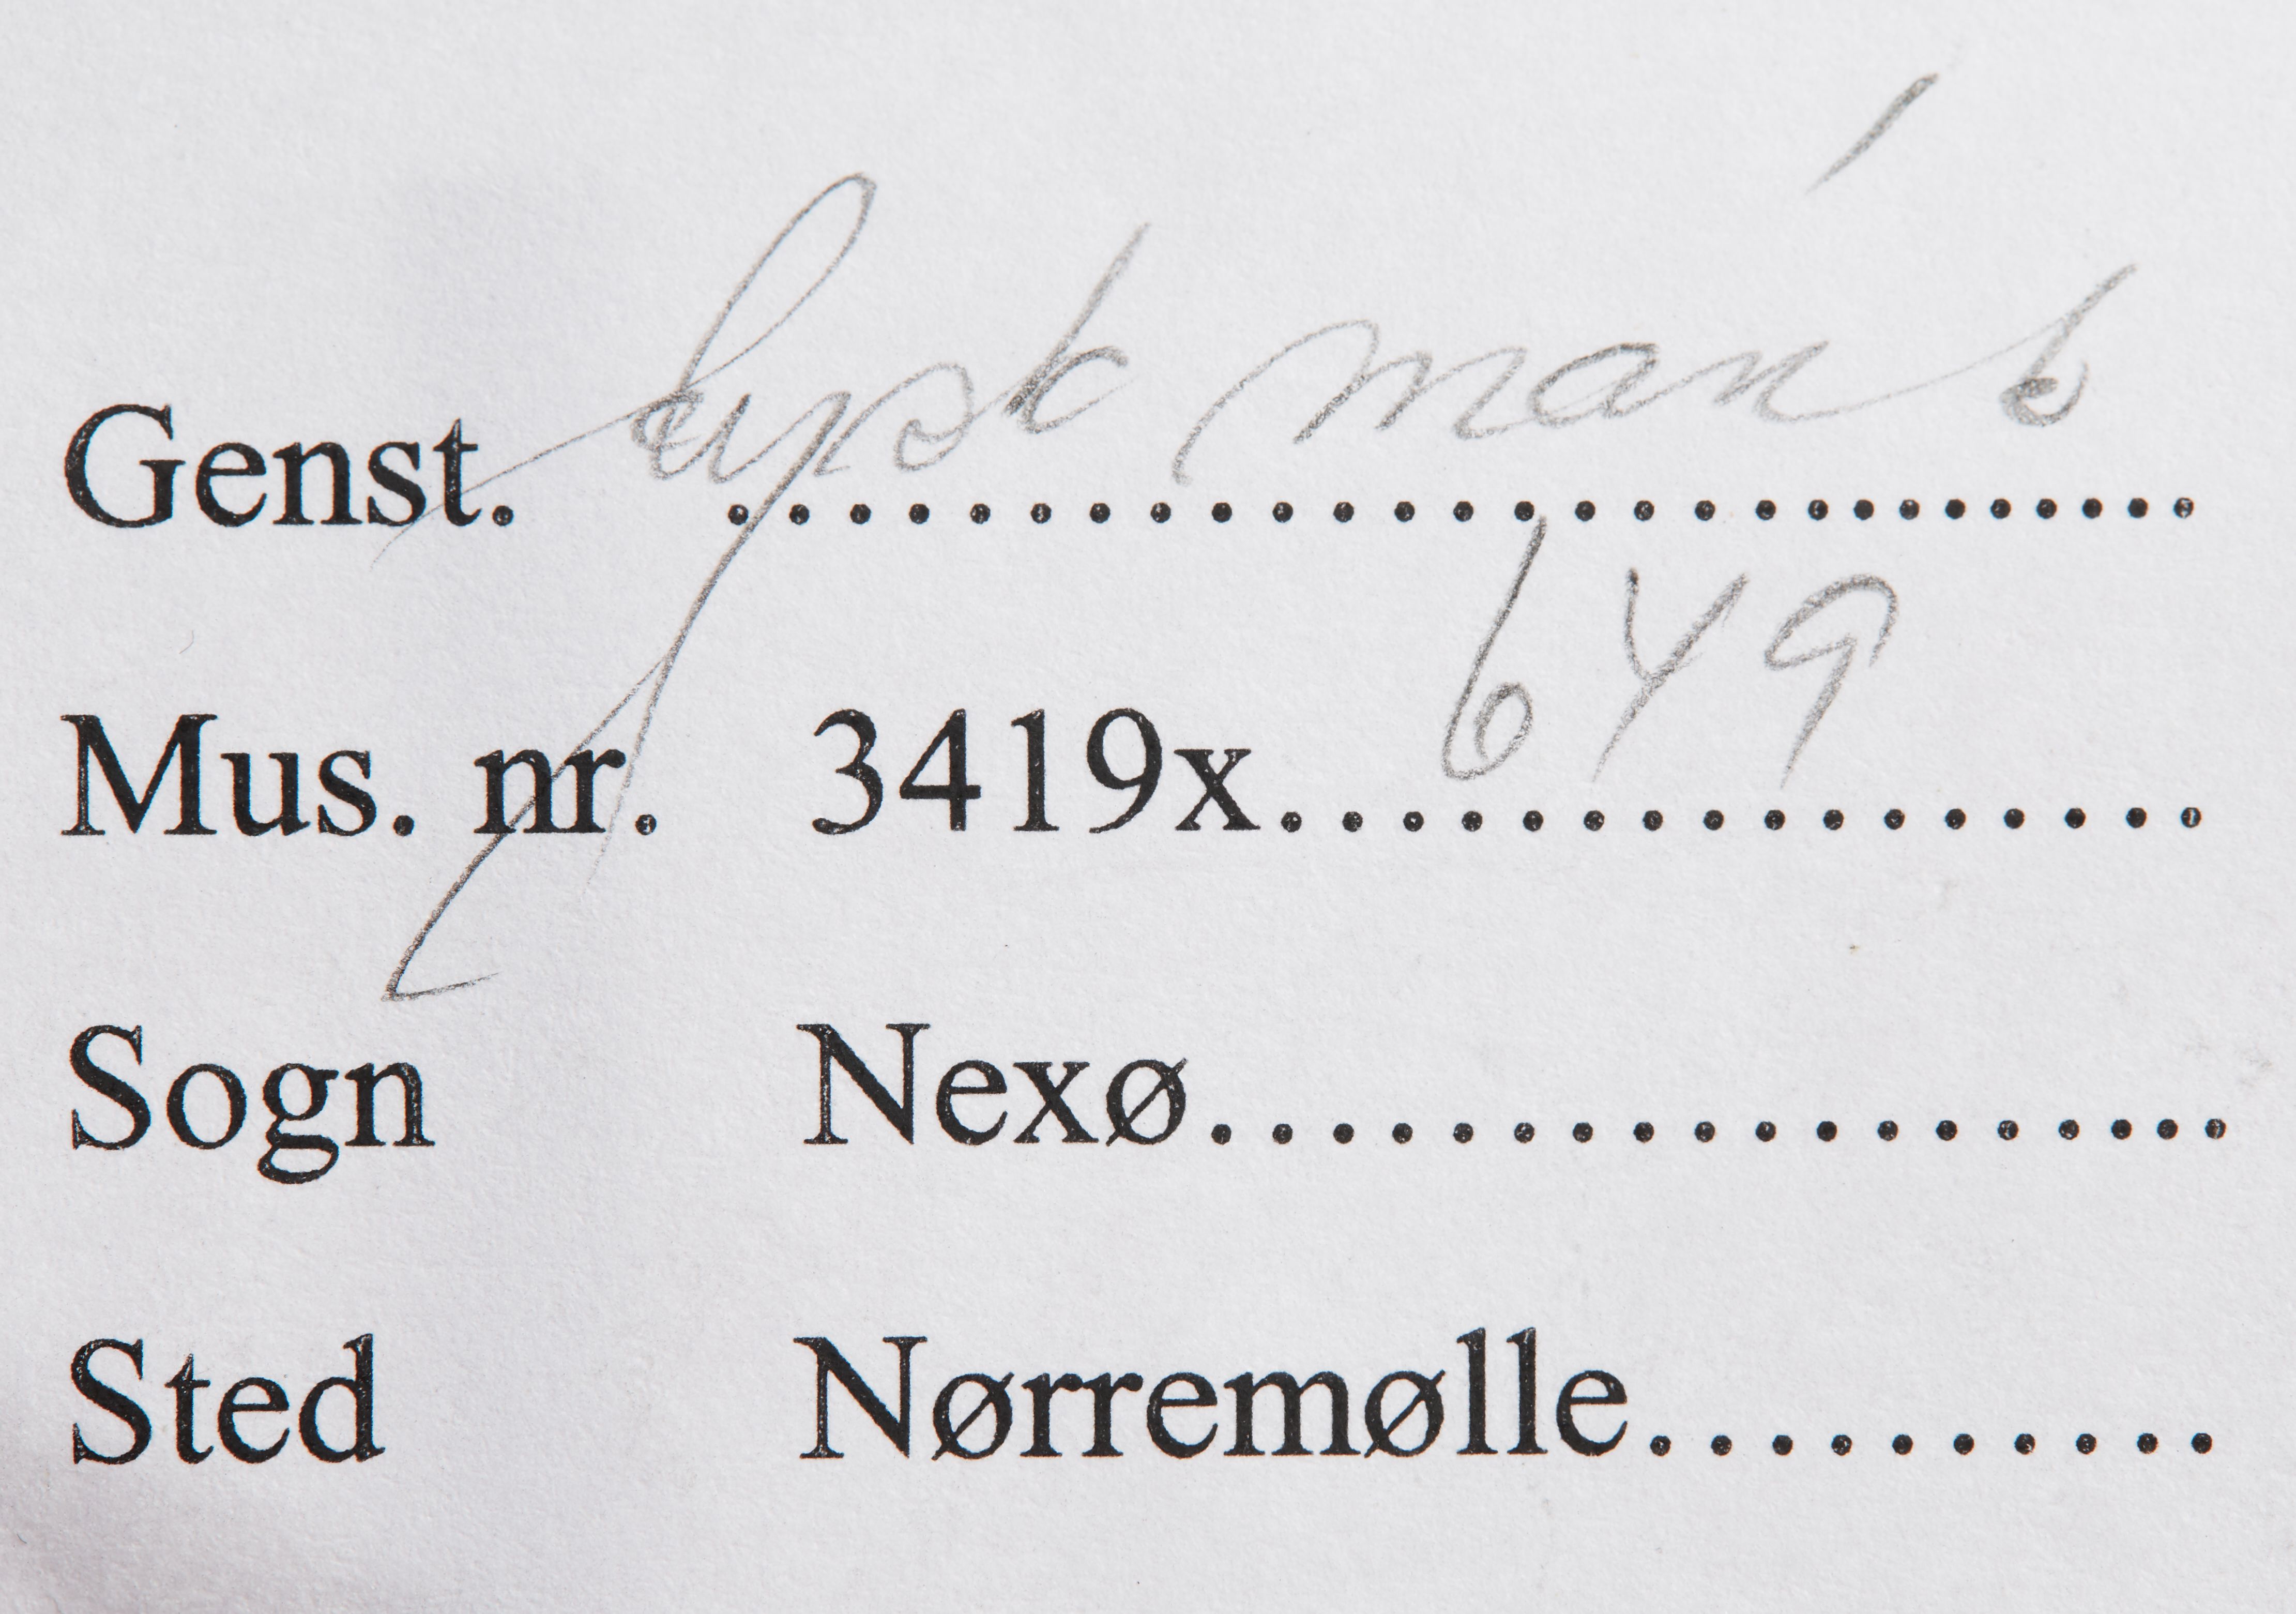 Genst. tysk mønt
Mus. nr. 3419x 649
Sogn Nexø
Sted Nørremølle